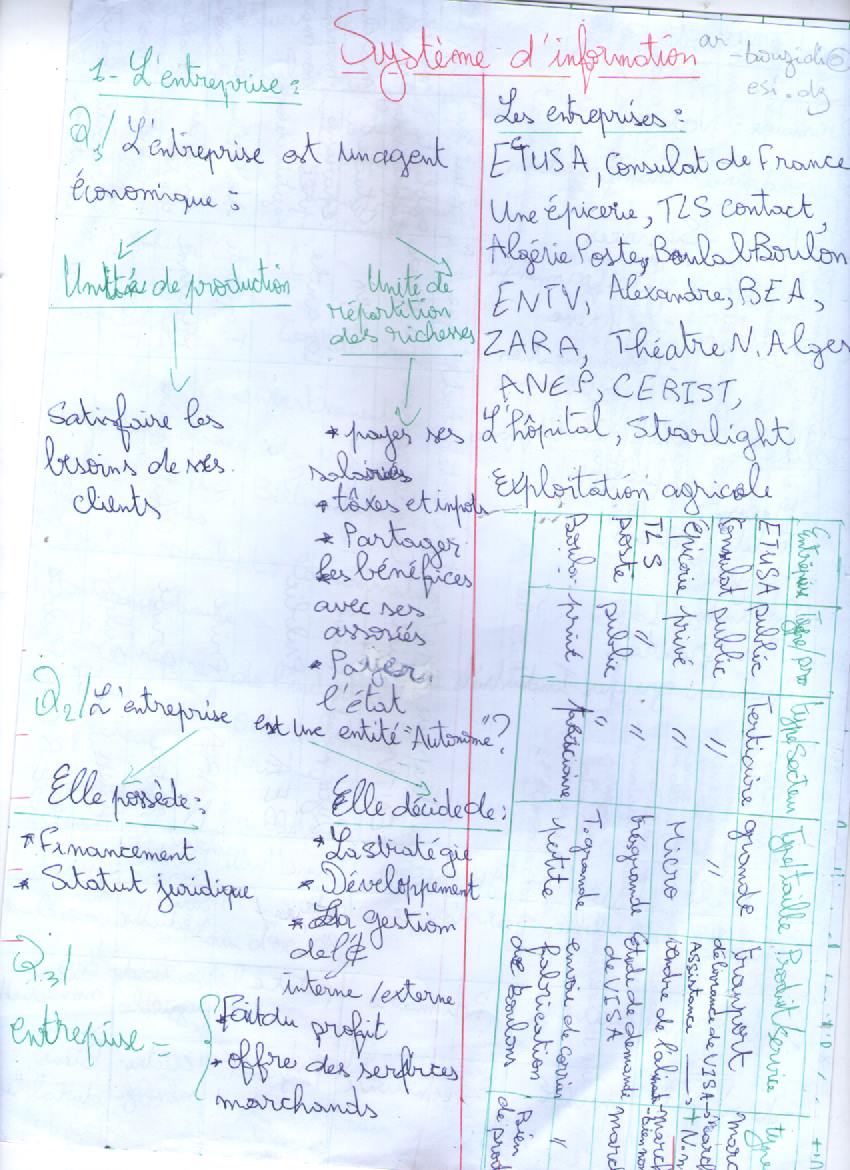 Système d'information
ar
-bouzidi@
esi.dz
1- L'entreprise :
Q1/ L'entreprise est un agent
économique :
Unité de production
Unité de
répartition
des richesses
Satisfaire les
besoins de ses
clients
* payes ses
salariés
* tâxes et impots
* Partager
les bénéfices
avec ses
associés
* Payer
l'état
Q2/ L'entreprise est une entité "Autonome"?
Elle possède :
* Financement
* Statut juridique
Elle décide de :
* La stratégie
* Développement
* La gestion
de l'É
interne / externe
Q3/
entreprise =
* Fait du profit
* offre des serfices
marchands
Les entreprises :
ETUSA, Consulat de France
Une épicerie, TLS contact,
Algérie Poste, Boulal Boulon
ENTV, Alexandre, BEA,
ZARA, Théatre N. Alger
ANEP, CERIST,
L'hôpital, Starlight
Exploitation agricole
Entreprise Type/pro type/Secteur Type/taille Produit/Service type
ETUSA public Tertiaire grande transport
Consulat public // // délivrance de VISA
Assistance
épicerie privé // Micro vendre de l'aliment
TLS // // trés grande Etude de demande de VISA
poste public // T. grande envoie de courrier //
Boulon privé petite fabrication de boulons Bien de prod